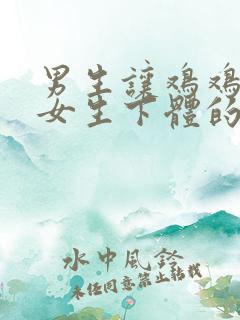 男生讓鸡鸡
女生下體的
水中風鈴
未经同意禁止转载